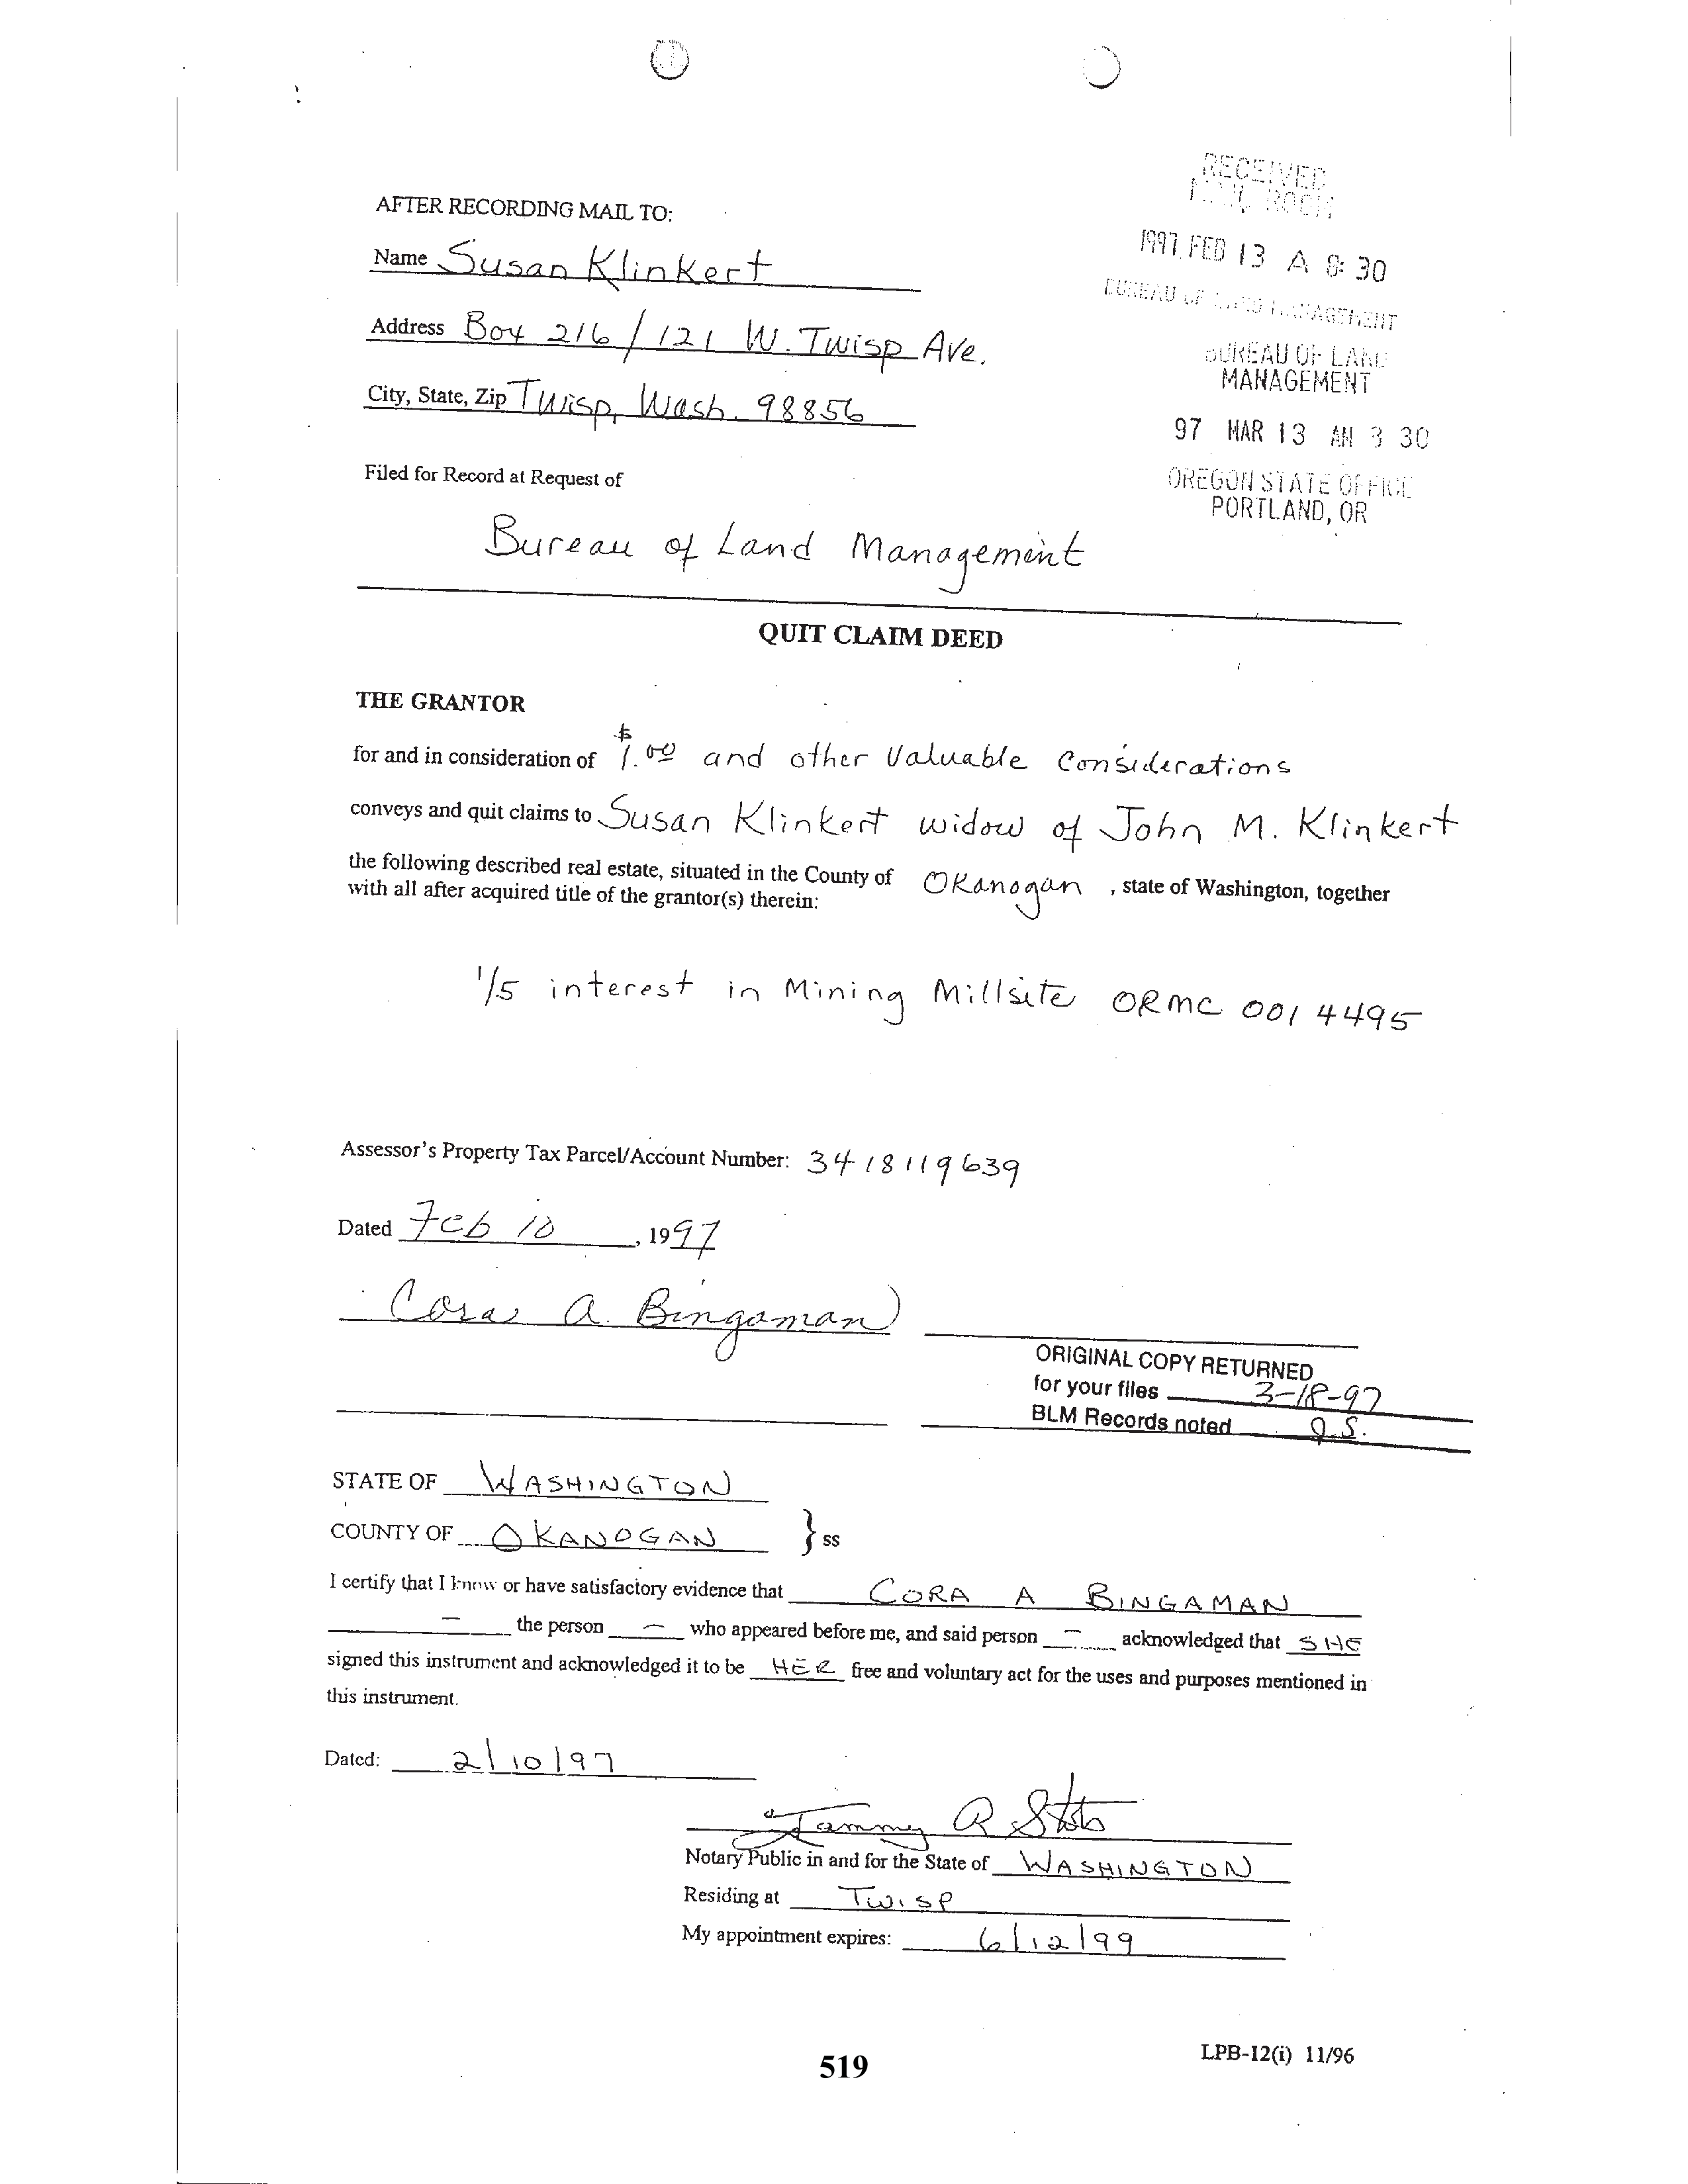 RECEIVED
MAIL ROOM
AFTER RECORDING MAIL TO:
1997 FEB 13 A 8:30
Name Susan Klinkert
BUREAU OF LAND MANAGEMENT
Address Box 216/121 W. Twisp Ave.
BUREAU OF LAND
MANAGEMENT
City, State, Zip Twisp, Wash. 98856
97 MAR 13 AM 30
Filed for Record at Request of
OREGON STATE OFFICE
PORTLAND, OR
Bureau of Land Management
QUIT CLAIM DEED
THE GRANTOR
for and in consideration of $1.00 and other Valuable Considerations
conveys and quit claims to Susan Klinkert widow of John M. Klinkert
the following described real estate, situated in the County of Okanogan, state of Washington, together
with all after acquired title of the grantor(s) therein:
1/5 interest in Mining Millsite ORMC 0014495
Assessor's Property Tax Parcel/Account Number: 3418119639
Dated Feb 10, 1997
Cora A. Bingaman
ORIGINAL COPY RETURNED
for your files 3-18-97
BLM Records noted J.S.
STATE OF WASHINGTON
COUNTY OF OKANOGAN } ss
I certify that I know or have satisfactory evidence that CORA A BINGAMAN
— the person — who appeared before me, and said person — acknowledged that SHE
signed this instrument and acknowledged it to be HER free and voluntary act for the uses and purposes mentioned in
this instrument.
Dated: 2/10/97
Tammy R
Notary Public in and for the State of WASHINGTON
Residing at TWISP
My appointment expires: 6/12/99
LPB-12(i) 11/96
519